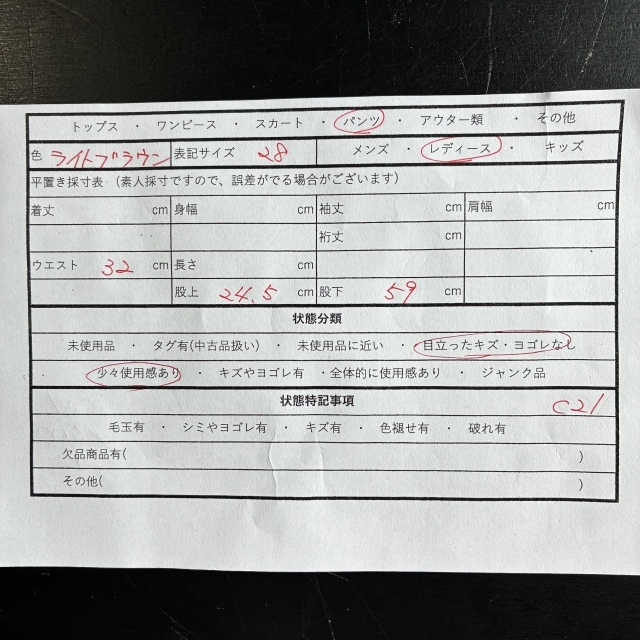 トップス ・ ワンピース ・ スカート ・ パンツ ・ アウター類 ・ その他
色 ライトブラウン 表記サイズ 28 メンズ ・ レディース ・ キッズ
平置き採寸表 (素人採寸ですので、誤差がでる場合がございます)
着丈 cm 身幅 cm 袖丈 cm 肩幅 cm
裄丈 cm
ウエスト 32 cm 長さ cm
股上 24.5 cm 股下 59 cm
状態分類
未使用品 ・ タグ有(中古品扱い) ・ 未使用品に近い ・ 目立ったキズ・ヨゴレなし
少々使用感あり ・ キズやヨゴレ有 ・全体的に使用感あり ・ ジャンク品
状態特記事項
C21
毛玉有 ・ シミやヨゴレ有 ・ キズ有 ・ 色褪せ有 ・ 破れ有
欠品商品有( )
その他( )